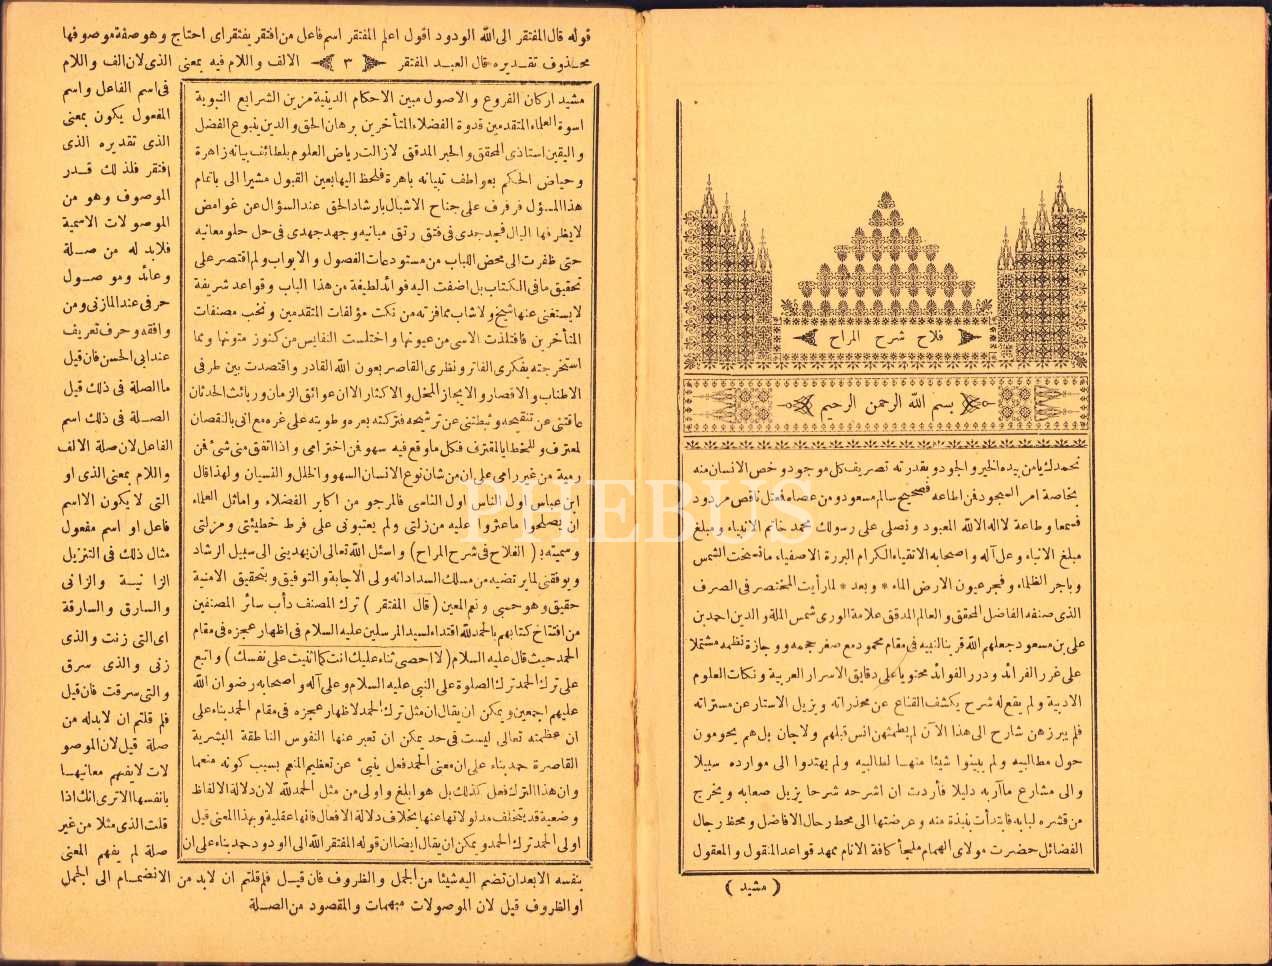 فلاح شرح المراح
بسم الله الرحمن الرحيم
نحمدك يا من بيده الخير والجود وبقدرته تصريف كل موجود وخص الانسان منه
بخاصة امر السجود فمن اطاعه فصحيح سالم مسعود ومن عصاه فمعتل ناقص مردود
فسمعا وطاعة لا اله الا الله المعبود ونصلى على رسولك محمد خاتم الانبياء ومبلغ
مبلغ الانباء وعلى آله واصحابه الاتقياء الكرام البررة الاصفياء ما تسخت الشمس
وباجر الظلماء وفجر عيون الارض الماء * وبعد * لما رأيت المختصر فى الصرف
الذى صنفه الفاضل المحقق والعالم المدقق علامة الورى شمس الملة والدين احمد بن
على بن مسعود جعلهم الله قربنا لنبيه فى مقام محمود مع صغر حجمه ووجازة نظمه مشتملا
على غرر الفرائد ودرر الفوائد محتويا على دقايق الاسرار العربية ونكات العلوم
الادبية ولم يقع له شرح يكشف القناع عن مخدراته ويزيل الاستار عن مستراته
فلم يبرزهن شارح الى هذا الآن لم يطمثهن انس قبلهم ولا جان بل هم يحومون
حول مطالبيه ولم يبينوا شيئا منها لطالبيه ولم يهتدوا الى موارده سبيلا
والى مشارع مآربه دليلا فأردت ان اشرحه شرحا يزيل صعابه ويخرج
من قشره لبابه فابتدأت بنبذة منه وعرضتها الى محط رحال الافاضل ومحظ رجال
الفضائل حضرت مولاى الهمام ملجأ كافة الانام ممهد قواعد المنقول والمعقول
( مشيد )
قوله قال المفتقر الى الله الودود اقول اعلم المفتقر اسم فاعل من افتقر يفتقر اى احتاج وهو صفة موصوفها
محذوف تقديره قال العبد المفتقر ٣ الالف واللام فيه بمعنى الذى لان الف واللام
مشيد اركان الفروع والاصول مبين الاحكام الدينية مزين الشرايع النبوية
اسوة العلماء المتقدمين قدوة الفضلاء المتأخرين برهان الحق والدين ينبوع الفضل
واليقين استاذى المحقق والحبر المدقق لا زالت رياض العلوم بلطائف بيانه زاهرة
وحياض الحكم بعواطف تبيانه باهرة فلحظ اليها بعين القبول مشيرا الى باتمام
هذا المسؤل فرفرف على جناح الاشبال بارشاد الحق عند السؤال عن غوامض
لا يظفر فها البال فجد جدى فى فتق رتق مبانيه وجهد جهدى فى حل حلو معانيه
حتى ظفرت الى محض اللباب من مستودعات الفصول والابواب ولم اقتصر على
تحقيق ما فى الكتاب بل اضفت اليه فوائد لطيفة من هذا الباب وقواعد شريفة
لا يستغنى عنها شيخ ولا شاب مما فزته من نكت مؤلفات المتقدمين ونخب مصنفات
المتأخرين فافتلذت الاسى من عيونها واختلست النفايس من كنوز متونها ومما
استخرجته بفكرى الفاتر ونظرى القاصر بعون الله القادر واقتصدت بين طرفى
الاطناب والاقصار والايجاز المخل والاكثار الا ان عوائق الزمان وربائث الحدثان
عاقتنى عن تنقيحه وثبطتنى عن ترشيحه فتركته بعره وطويته على غره مع انى بالنقصان
لمعترف وللخطايا لمقترف فكل ما وقع فيه سهو فمن اخترامى واذا اتفق منى شئ فمن
رمية من غير رامى على ان من شان نوع الانسان السهو والخلل والنسيان ولهذا قال
ابن عباس اول الناس اول الناسى فالمرجو من اكابر الفضلاء واماثل العلماء
ان يصلحوا ما عثروا عليه من زلتى ولم يعتبونى على فرط خطيئتى ومزلتى
وسميته بـ ( الفلاح فى شرح المراح ) واسئل الله تعالى ان يهدينى الى سبيل الرشاد
ويوفقنى لما يرتضيه من مسلك السداد انه ولى الاجابة والتوفيق وبتحقيق الامنية
حقيق وهو حسبى ونعم المعين ( قال المفتقر ) ترك المصنف دأب سائر المصنفين
من افتتاح كتابهم بالحمد لله اقتداء لسيد المرسلين عليه السلام فى اظهار عجزه فى مقام
الحمد حيث قال عليه السلام ( لا احصى ثناء عليك انت كما اثنيت على نفسك ) واتبع
على ترك الحمد ترك الصلوة على النبى عليه السلام وعلى آله واصحابه رضوان الله
عليهم اجمعين ويمكن ان يقال ان مثل ترك الحمد لاظهار عجزه فى مقام الحمد بناء على
ان عظمته تعالى ليست فى حد يمكن ان تعبر عنها النفوس الناطقة البشرية
القاصرة حمد بناء على ان معنى الحمد فعل ينبئ عن تعظيم المنعم بسبب كونه منعما
وان هذا الترك فعل كذلك بل هو ابلغ واولى من مثل الحمد لله لان دلالة الالفاظ
وضعية قد يتخلف مدلولاتها عنها بخلاف دلالة الافعال فانها عقلية وبهذا المعنى قيل
اولى الحمد ترك الحمد ويمكن ان يقال ايضا ان قوله المفتقر الله الى الودود حمد بناء على ان
فى اسم الفاعل واسم
المفعول يكون بمعنى
الذى تقديره الذى
افتقر فلذلك قدر
الموصوف وهو من
الموصولات الاسمية
فلابد له من صلة
وعائد وموصول
حرفى عند المازنى ومن
وافقه وحرف تعريف
عند ابى الحسن فان قيل
ما الصلة فى ذلك قيل
الصلة فى ذلك اسم
الفاعل لان صلة الالف
واللام بمعنى الذى او
التى لا يكون الا اسم
فاعل او اسم مفعول
مثال ذلك فى التنزيل
الزانية والزانى
والسارق والسارقة
اى التى زنت والذى
زنى والذى سرق
والتى سرقت فان قيل
فلم قلتم ان لابد له من
صلة قيل لان الموصو
لات لا يفهم معانيها
بانفسها الا ترى انك اذا
قلت الذى مثلا من غير
صلة لم يفهم المعنى
بنفسه الا بعد ان تضم اليه شيئا من الجمل والظروف فان قيل فلم قلتم ان لابد من الانضمام الى الجمل
او الظروف قيل لان الموصولات مبهمات والمقصود من الصلة
PHEBUS